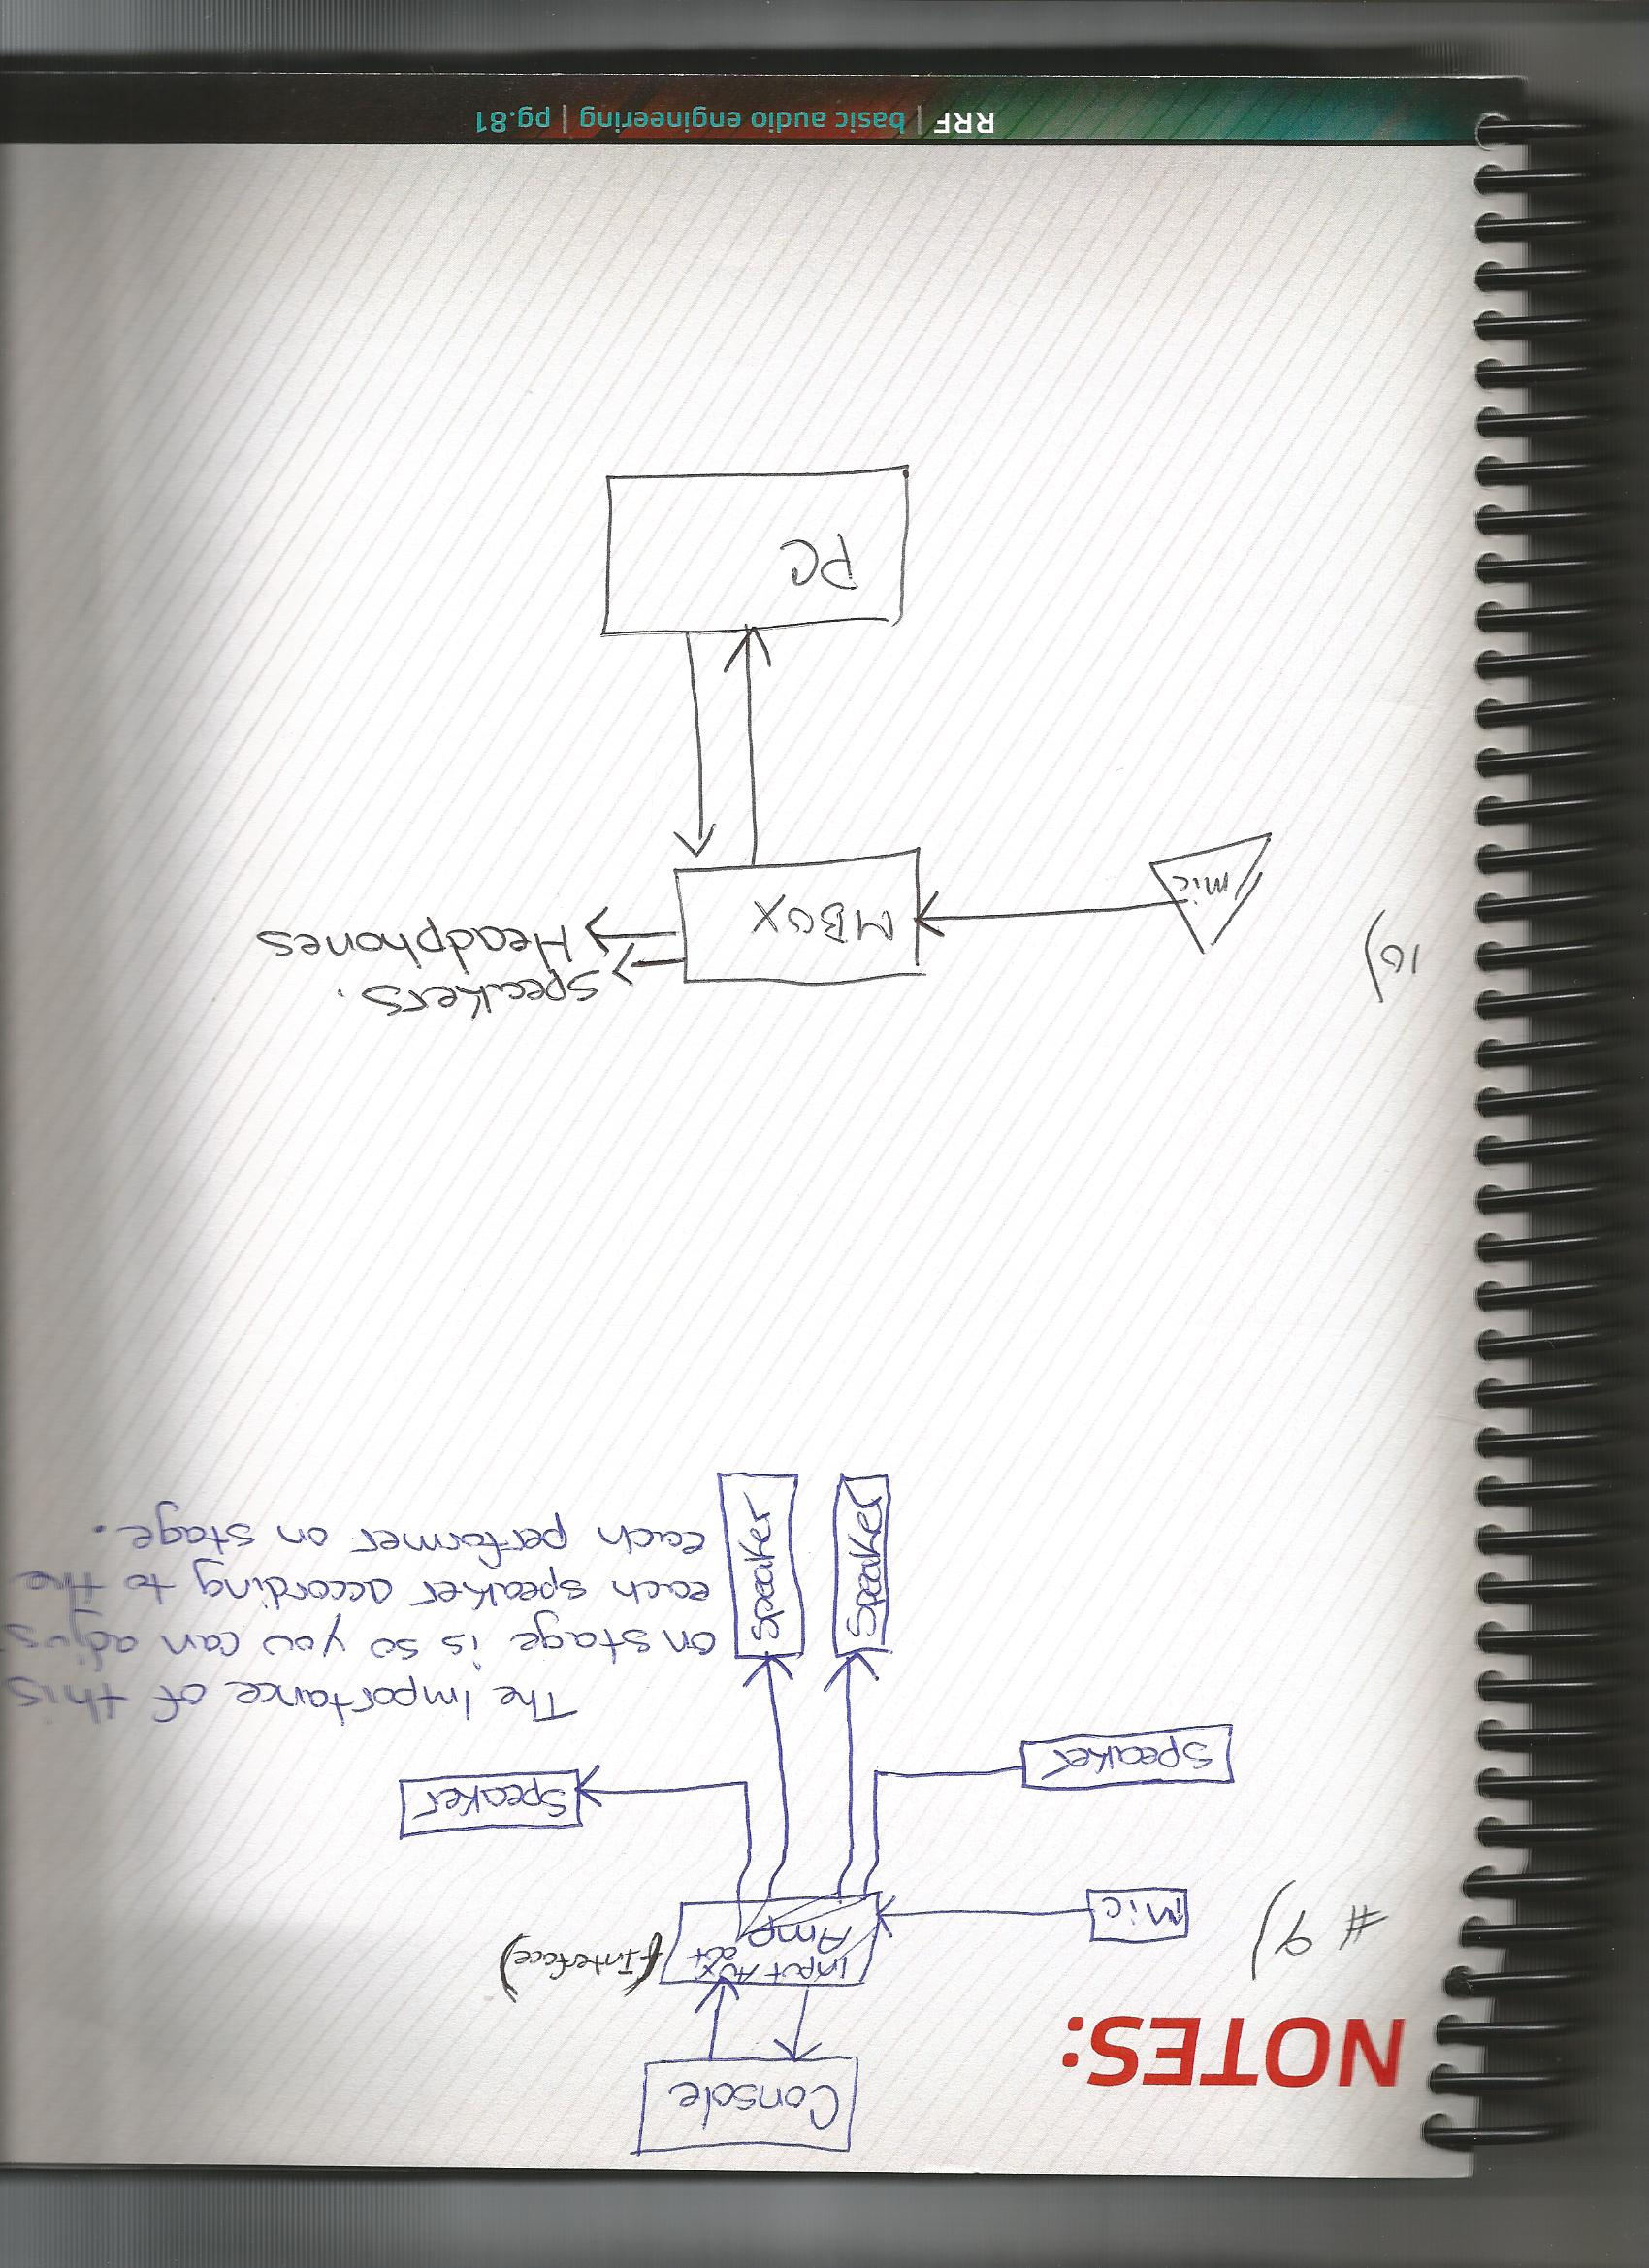 NOTES:
Console
# 9)
Mic
Input Aux
out
Amp
(Interface)
Speaker
Speaker
The Importance of this
on stage is so you can adjus
each speaker according to the
each performer on stage.
Speaker
Speaker
10)
mic
MBOX
Speakers.
Headphones
PC
RRF | basic audio engineering | pg.81